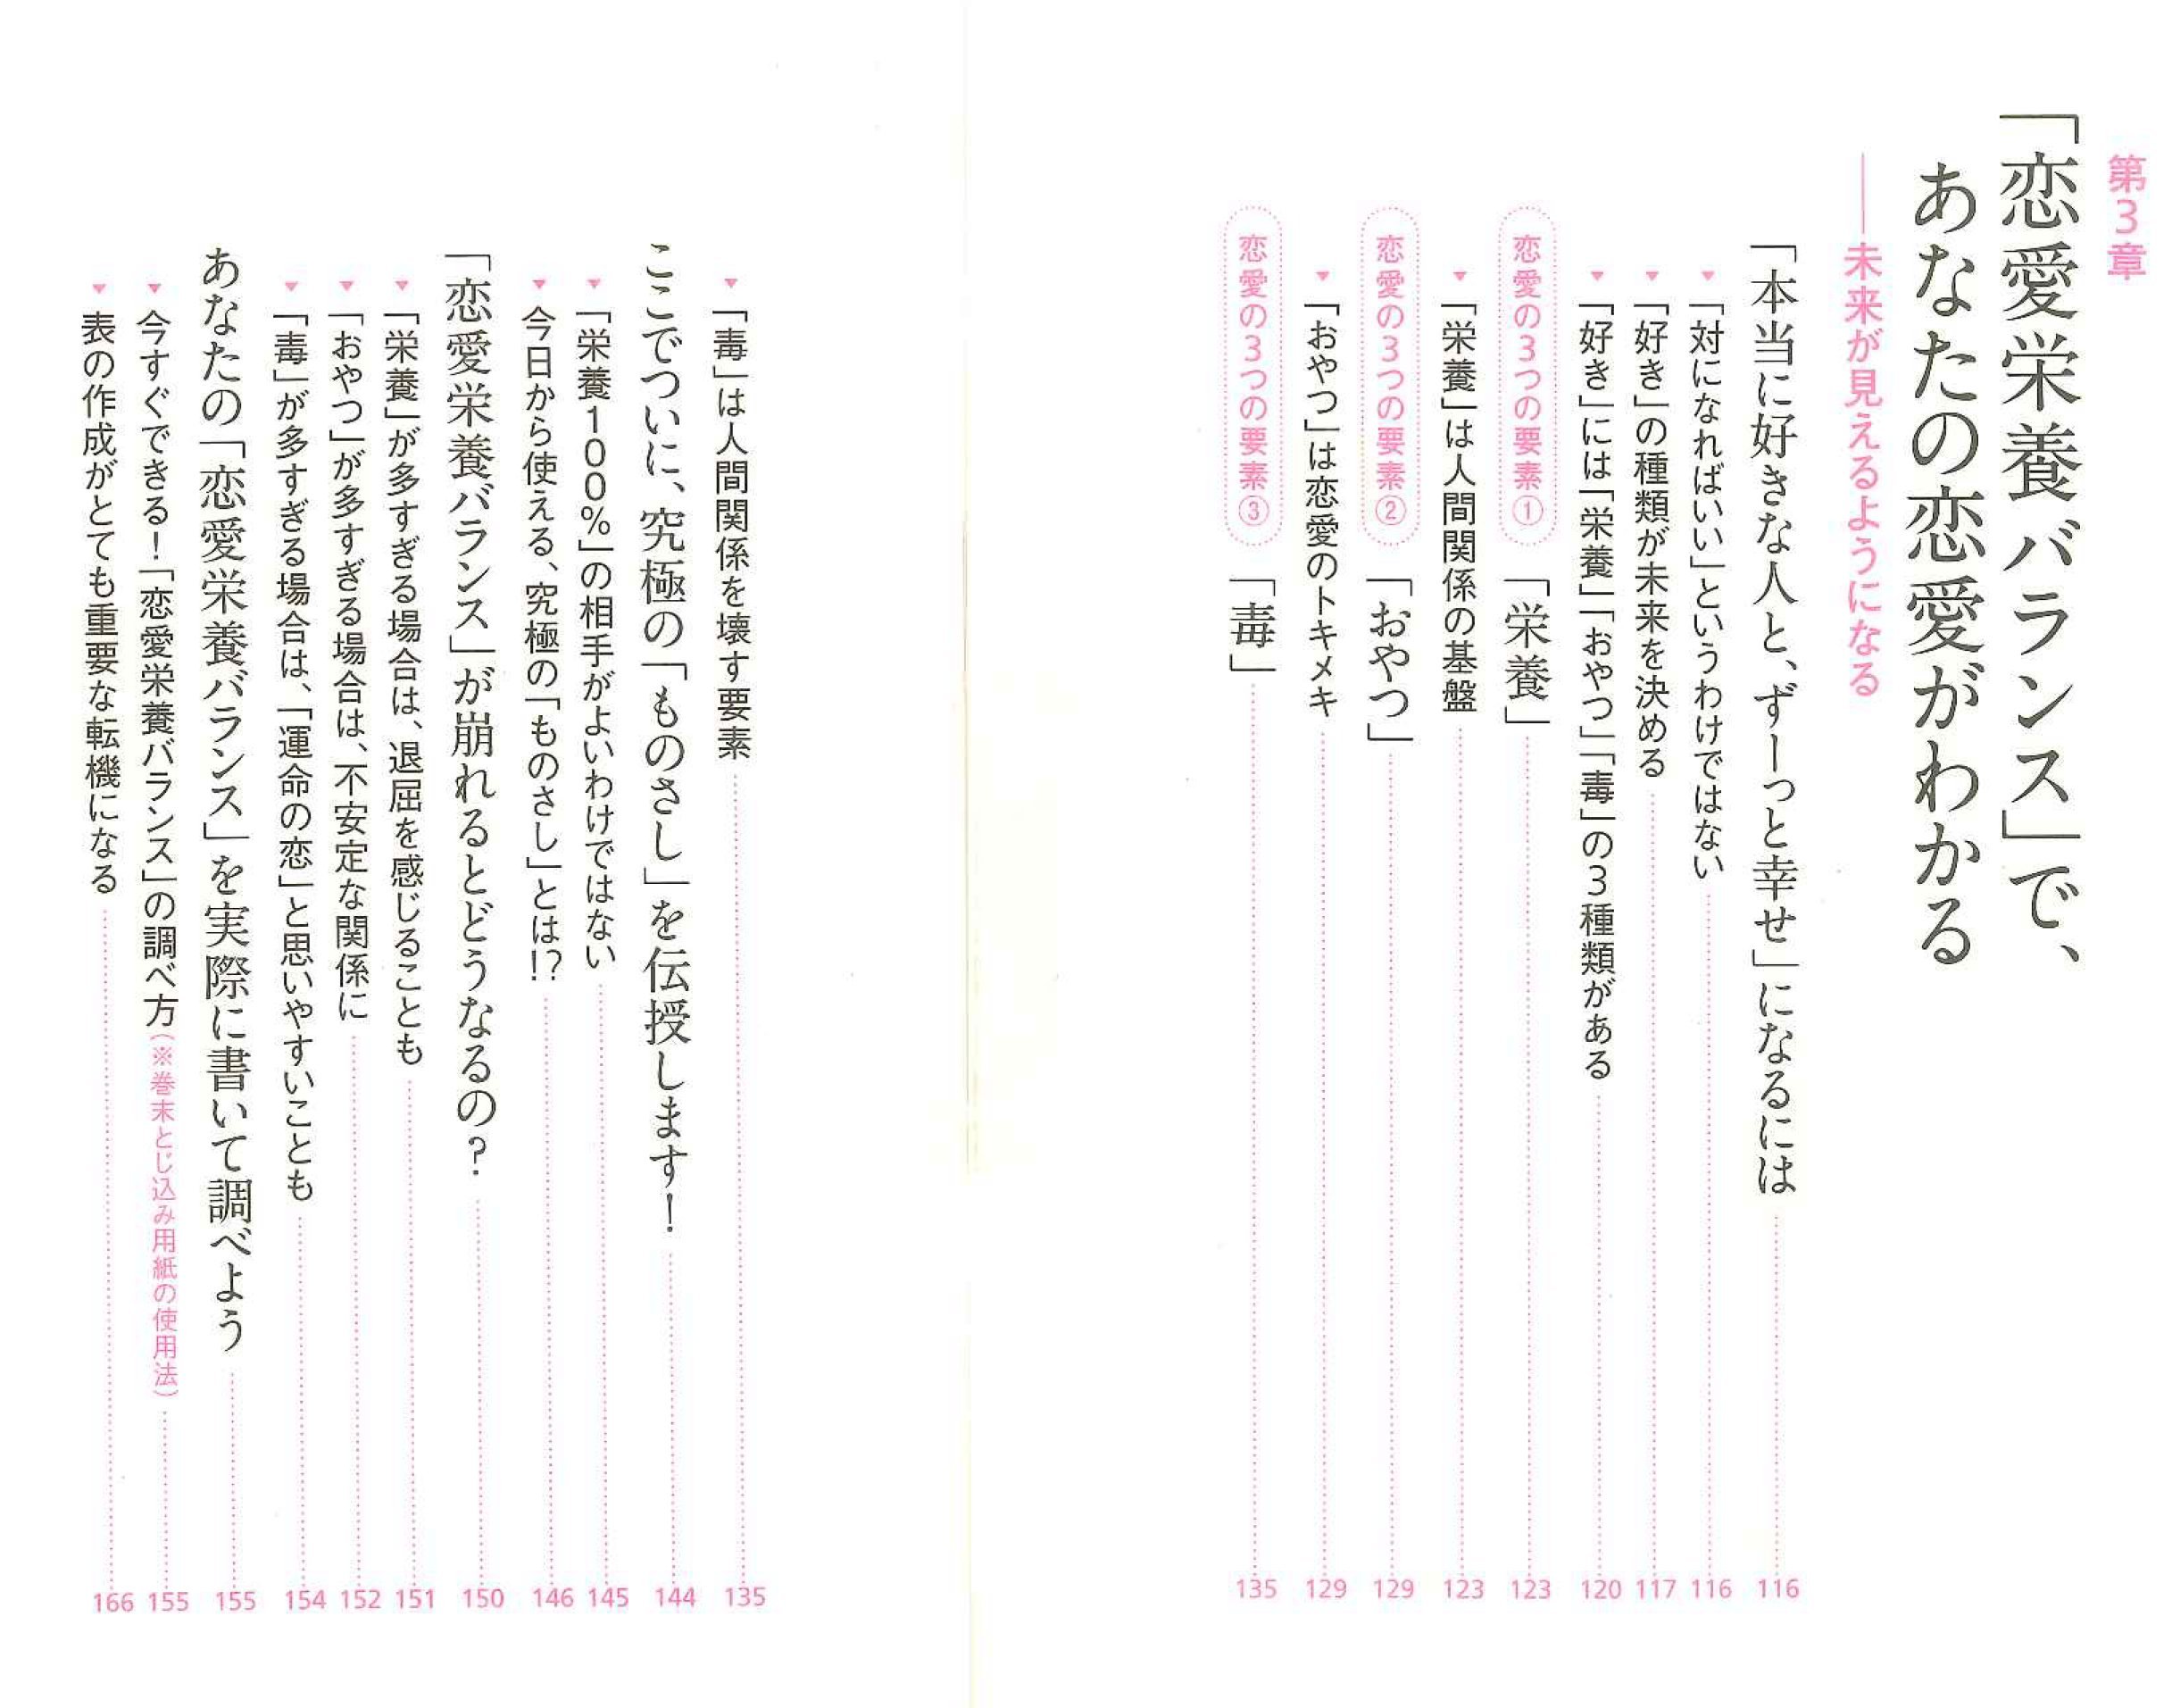 第3章
「恋愛栄養バランス」で、
あなたの恋愛がわかる
――未来が見えるようになる
「本当に好きな人と、ずーっと幸せ」になるには 116
▼「対になればいい」というわけではない 116
▼「好き」の種類が未来を決める 117
▼「好き」には「栄養」「おやつ」「毒」の3種類がある 120
恋愛の3つの要素① 「栄養」 123
▼「栄養」は人間関係の基盤 123
恋愛の3つの要素② 「おやつ」 129
▼「おやつ」は恋愛のトキメキ 129
恋愛の3つの要素③ 「毒」 135
▼「毒」は人間関係を壊す要素 135
ここでついに、究極の「ものさし」を伝授します! 144
▼「栄養100%」の相手がよいわけではない 145
▼今日から使える、究極の「ものさし」とは!? 146
「恋愛栄養バランス」が崩れるとどうなるの? 150
▼「栄養」が多すぎる場合は、退屈を感じることも 151
▼「おやつ」が多すぎる場合は、不安定な関係に 152
▼「毒」が多すぎる場合は、「運命の恋」と思いやすいことも 154
あなたの「恋愛栄養バランス」を実際に書いて調べよう 155
▼今すぐできる!「恋愛栄養バランス」の調べ方(※巻末とじ込み用紙の使用法) 155
▼表の作成がとても重要な転機になる 166